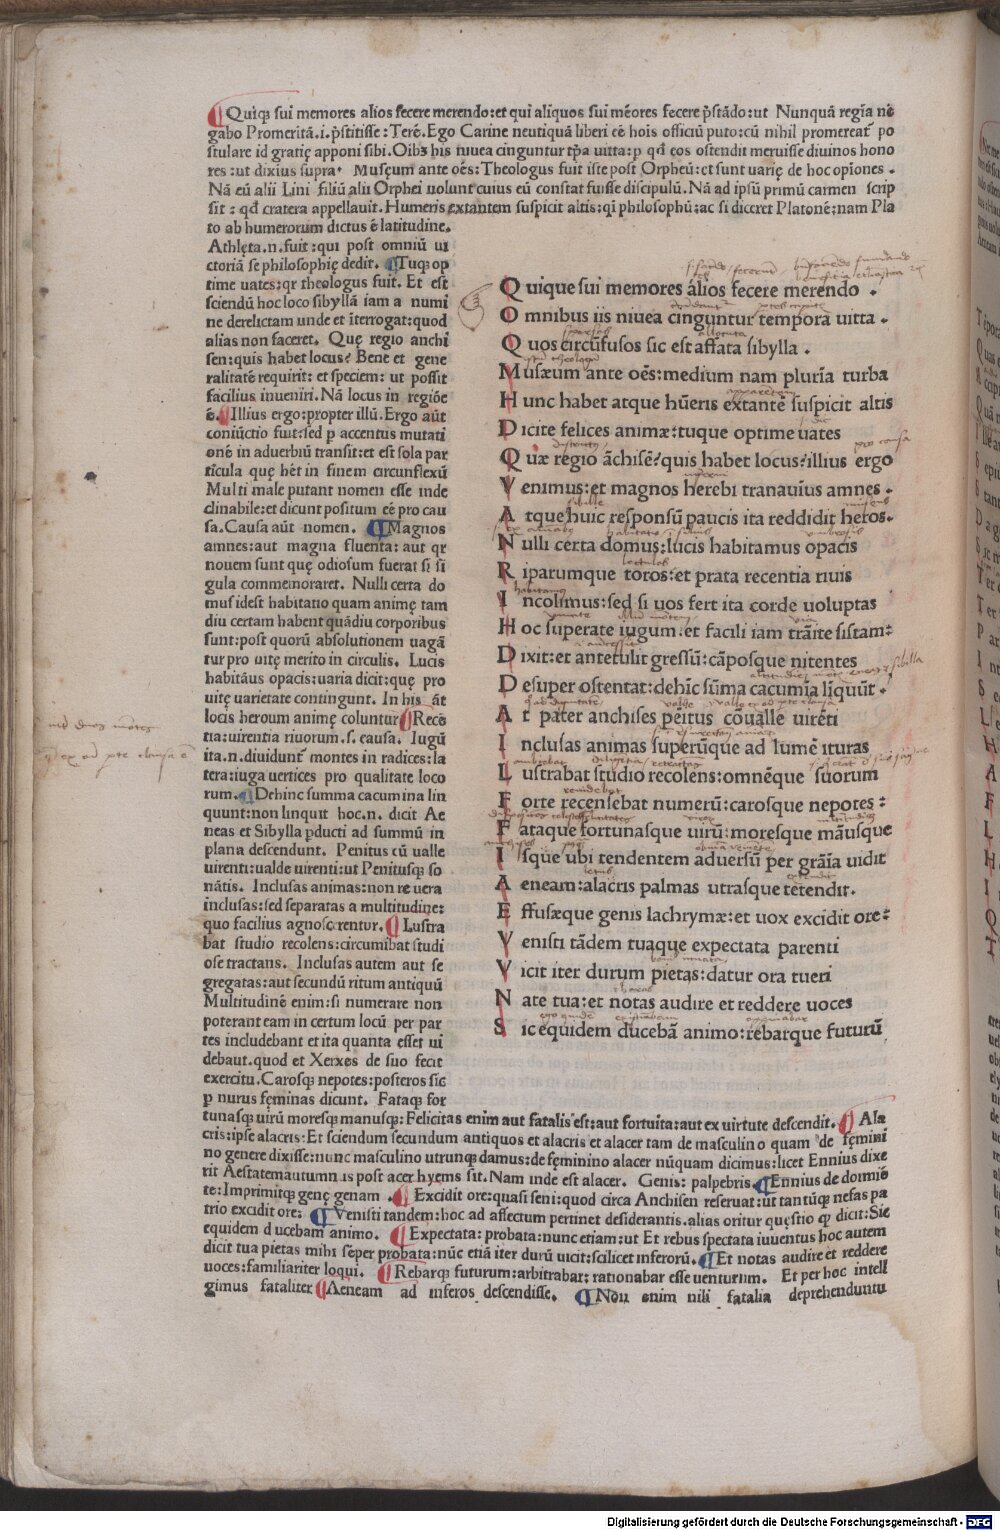 ¶Quiqꝫ sui memores alios fecere merendo:et qui aliquos sui mēores fecere p̄stādo:ut Nunquā regīa ne
gabo Promeritā.i.p̄stitisse:Terē.Ego Carine neutiquā liberi eē hois officiū puto:cū nihil promereat᷑ po
stulare id gratię apponi sibi.Oibꝫ his niuea cinguntur tp̄a uitta:p qđ eos ostendit meruisse diuinos hono
res:ut dixius supra. Musęum ante oēs:Theologus fuit iste post Orpheū:et sunt uarię de hoc opīones.
Nā eū alii Lini filiū alii Orphei uolunt cuius eū constat fuisse discipulū.Nā ad ipsū primū carmen scrip
sit: qđ cratera appellauit.Humeris extantem suspicit altis:qi philosophū:ac si diceret Platonē:nam Pla
to ab humerorum dictus ē latitudine.
Athlęta.n.fuit:qui post omniū ui
ctoriā se philosophię dedit. ¶Tuqꝫ op
time uates:qr theologus fuit. Et est
sciendū hoc loco sibyllā iam a numi
ne derelictam unde et īterrogat:quod
alias non faceret. Quę regio anchi
sen:quis habet locus? Bene et gene
ralitatē requirit: et speciem: ut possit
facilius inueniri.Nā locus in regiōe
ē.¶Illius ergo:propter illū.Ergo aūt
coniūctio fuit:sed p accentus mutati
onē in aduerbiū transit:et est sola par
ticula quę hēt in finem circunflexū
Multi male putant nomen esse inde
clinabile:et dicunt positum eē pro cau
sa.Causa aūt nomen. ¶Magnos
amnes:aut magna fluenta: aut qr
nouem sunt quę odiosum fuerat si si
gula commemoraret. Nulli certa do
mus idest habitatio quam animę tam
diu certam habent quādiu corporibus
sunt:post quorū absolutionem uagā
tur pro uitę merito in circulis. Lucis
habitāus opacis:uaria dicit:quę pro
uitę uarietate contingunt. In his āt
locis heroum animę coluntur¶Rece
tia:uirentia riuorum.s. causa. Iugū
ita.n.diuidunt᷑ montes in radices:la
tera:iuga uertices pro qualitate loco
rum.¶Dehinc summa cacumina lin
quunt:non linquit hoc.n. dicit Ae
neas et Sibylla pducti ad summū in
plana descendunt. Penitus cū ualle
uirenti:ualde uirenti:ut Penitusqꝫ so
nātis. Inclusas animas:non re uera
inclusas:sed separatas a multitudine:
quo facilius agnoscerentur.¶Lustra
bat studio recolens:circumibat studi
ose tractans. Inclusas autem aut se
gregatas:aut secundū ritum antiquū
Multitudinē enim:si numerare non
poterant eam in certum locū per par
tes includebant et ita quanta esset ui
debant.quod et Xerxes de suo fecit
exercitu.Carosqꝫ nepotes:posteros sic
p nurus fęminas dicunt. Fataqꝫ for
tunasqꝫ uirū moresqꝫ manusqꝫ:Felicitas enim aut fatalis est:aut fortuita:aut ex uirtute descendit.¶Ala
cris:ipse alacris:Et sciendum secundum antiquos et alacris et alacer tam de masculino quam de fęmini
no genere dixisse:nunc masculino utrunqꝫ damus:de fęminino alacer nūquam dicimus:licet Ennius dixe
rit Aestatemautumnus post acer hyems sit.Nam inde est alacer. Genis: palpebris.¶Ennius de dormiē
te:Imprimitqꝫ genę genam .¶ Excidit ore:quasi seni:quod circa Anchisen reseruat:ut tantūqꝫ nefas pa
trio excidit ore: ¶Venisti tandem:hoc ad affectum pertinet desiderantis.alias oritur quęstio qꝫ dicit:Sic
equidem ducebam animo. ¶Expectata: probata:nunc etiam:ut Et rebus spectata iuuentus hoc autem
dicit tua pietas mihi sēper probata:nūc etiā iter durū uicit:scilicet inferorū.¶Et notas audire et reddere
uoces:familiariter loqui. ¶Rebarqꝫ futurum:arbitrabar: rationabar esse uenturum. Et per hoc intell
gimus fataliter¶Aeneam ad inferos descendisse. ¶Non enim nisi fatalia deprehenduntu
Quique sui memores alios fecere merendo .
Omnibus iis niuea cinguntur tempora uitta .
Quos circūfusos sic est affata sibylla .
Musæum ante oēs:medium nam plurīa turba
Hunc habet atque hūeris extantē suspicit altis
Dicite felices animæ:tuque optime uates
Quæ regio āchisē?quis habet locus?illius ergo
Venimus:et magnos herebi tranauius amnes .
Atque huic responsū paucis ita reddidit heros.
Nulli certa domus:lucis habitamus opacis
Riparumque toros:et prata recentia riuis
Incolimus:sed si uos fert ita corde uoluptas
Hoc superate iugum.et facili iam trāite sistam:
Dixit:et antetulit gressū:cāposque nitentes
Desuper ostentat:dehīc sūma cacumīa līquūt .
At pater anchises pēitus cōualle uirēti
Inclusas animas superūque ad lumē ituras
Lustrabat studio recolens:omnēque suorum
Forte recensebat numerū:carosque nepotes:
Fataque fortunasque uirū:moresque māusque
Isque ubi tendentem aduersū per grāīa uidit
Aeneam:alacris palmas utrasque tetendit.
Effusæque genis lachrymæ:et uox excidit ore:
Venisti tādem tuaque expectata parenti
Vicit iter durum pietas:datur ora tueri
Nate tua:et notas audire et reddere uoces
Sic equidem ducebā animo:rebarque futurū
Digitalisierung gefördert durch die Deutsche Forschungsgemeinschaft - DFG